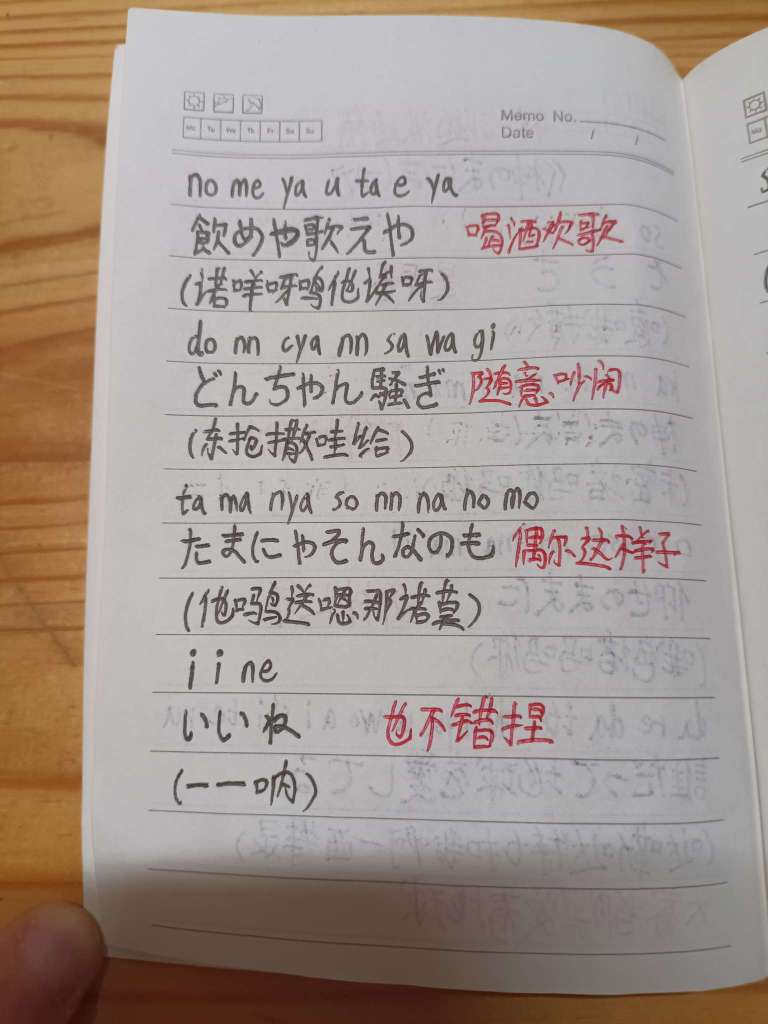 Memo No.
Mo Tu We Th Fr Sa Su
Date / /
no me ya u ta e ya
飲めや歌えや 喝酒欢歌
(诺咩呀呜他诶呀)
do nn cya nn sa wa gi
どんちゃん騒ぎ 随意吵闹
(东抢撒哇给)
ta ma nya so nn na no mo
たまにゃそんなのも 偶尔这样子
(他吗鸟送嗯那诺莫)
i i ne
いいね 也不错捏
(一一呐)